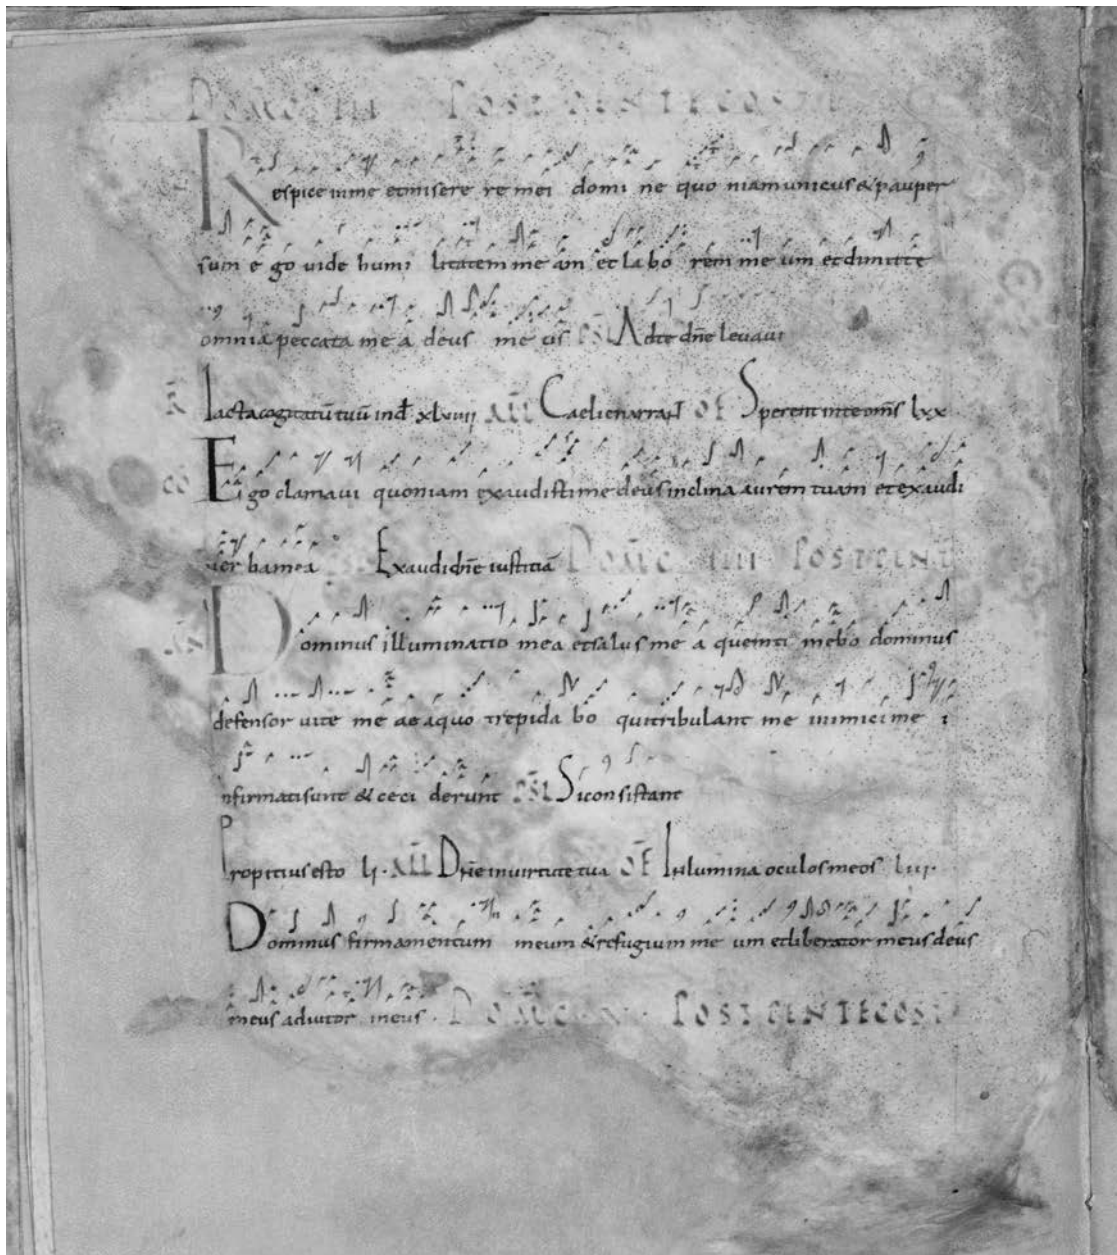 DOMC III POST PENTECOSTEN
Respice in me et misere re mei domi ne quo niam unicus & pauper
sum e go vide humi litatem me am et la bo rem me um et dimitte
omnia peccata me a deus me us PSL Ad te dñe levavi
R Iacta cogitatū tuū in dō xlviiij ALL Caeli enarrant OF Sperent in te omēs lxx
CŌ Ego clamavi quoniam exaudisti me deus inclina aurem tuam et exaudi
ver ba mea Exaudi dñe iustitiā DOMC IIII POST PENT
Dominus illuminatio mea et salus me a quem ti mebo dominus
defensor vite me ae a quo trepida bo qui tribulant me inimici me i
nfirmati sunt & ceci derunt PSL Si consistant
Propitius esto lj. ALL Dñe in virtute tua OF Inlumina oculos meos
Dominus firmamentum meum & refugium me um et liberator meus deus
meus adiutor meus. DOMC POST PENTECOST